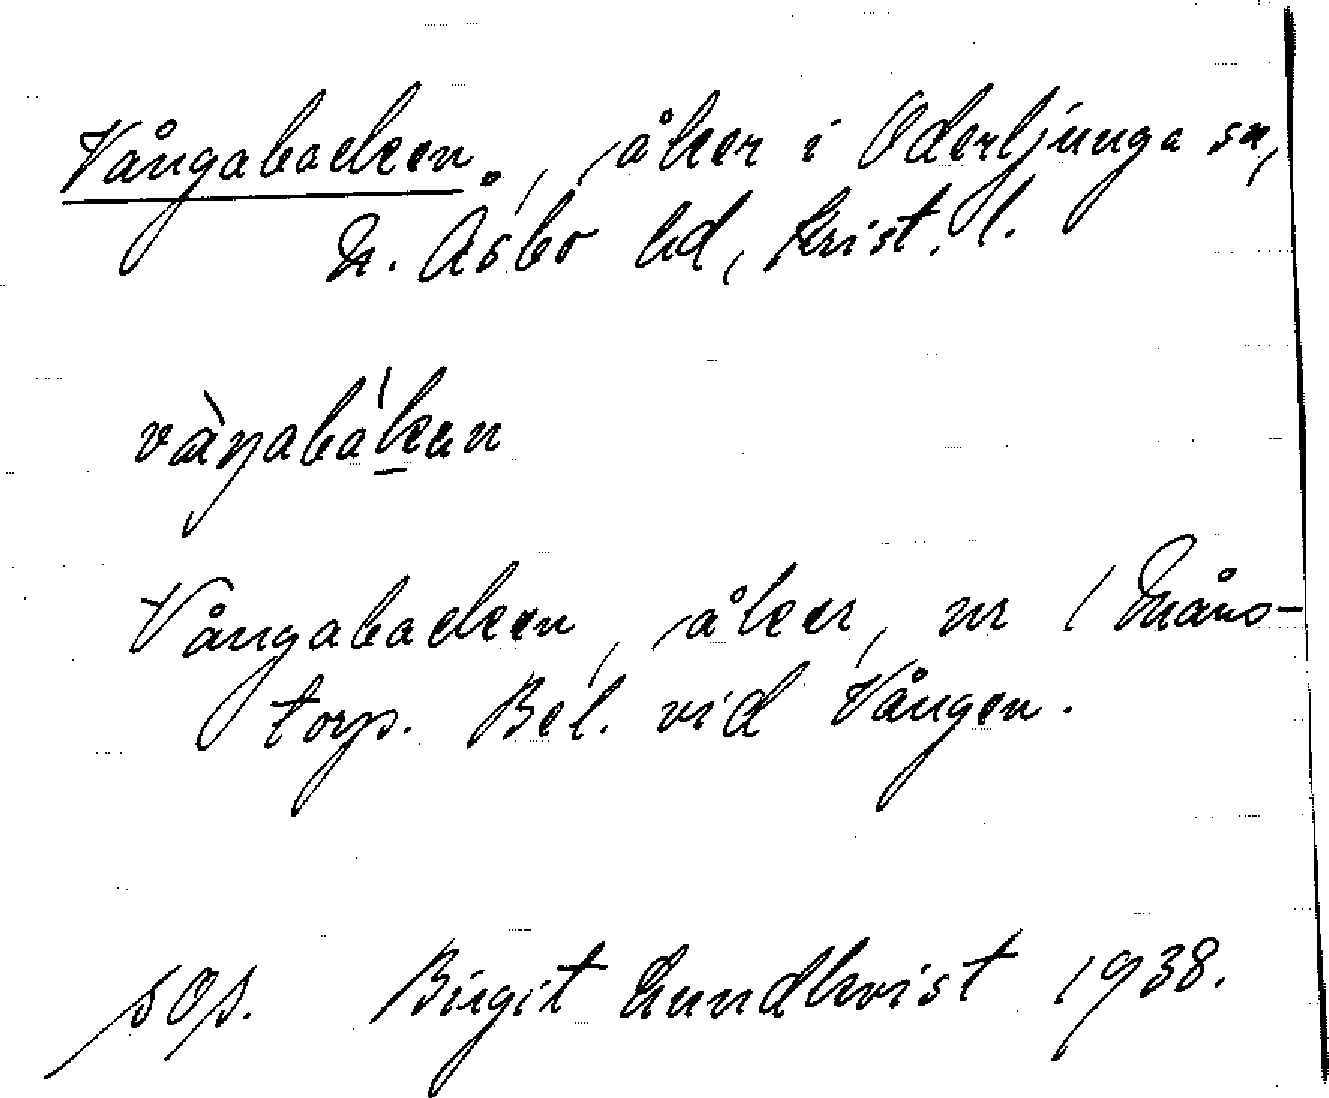 Vångabacken, åker i Oderljunga sn,
N. Åsbo hd, Krist. l.
vàŋabákan
Vångabacken, åker, nr 1 Måns-
torp. Bel. vid Vången.
sOp. Birgit Lundkvist 1938.